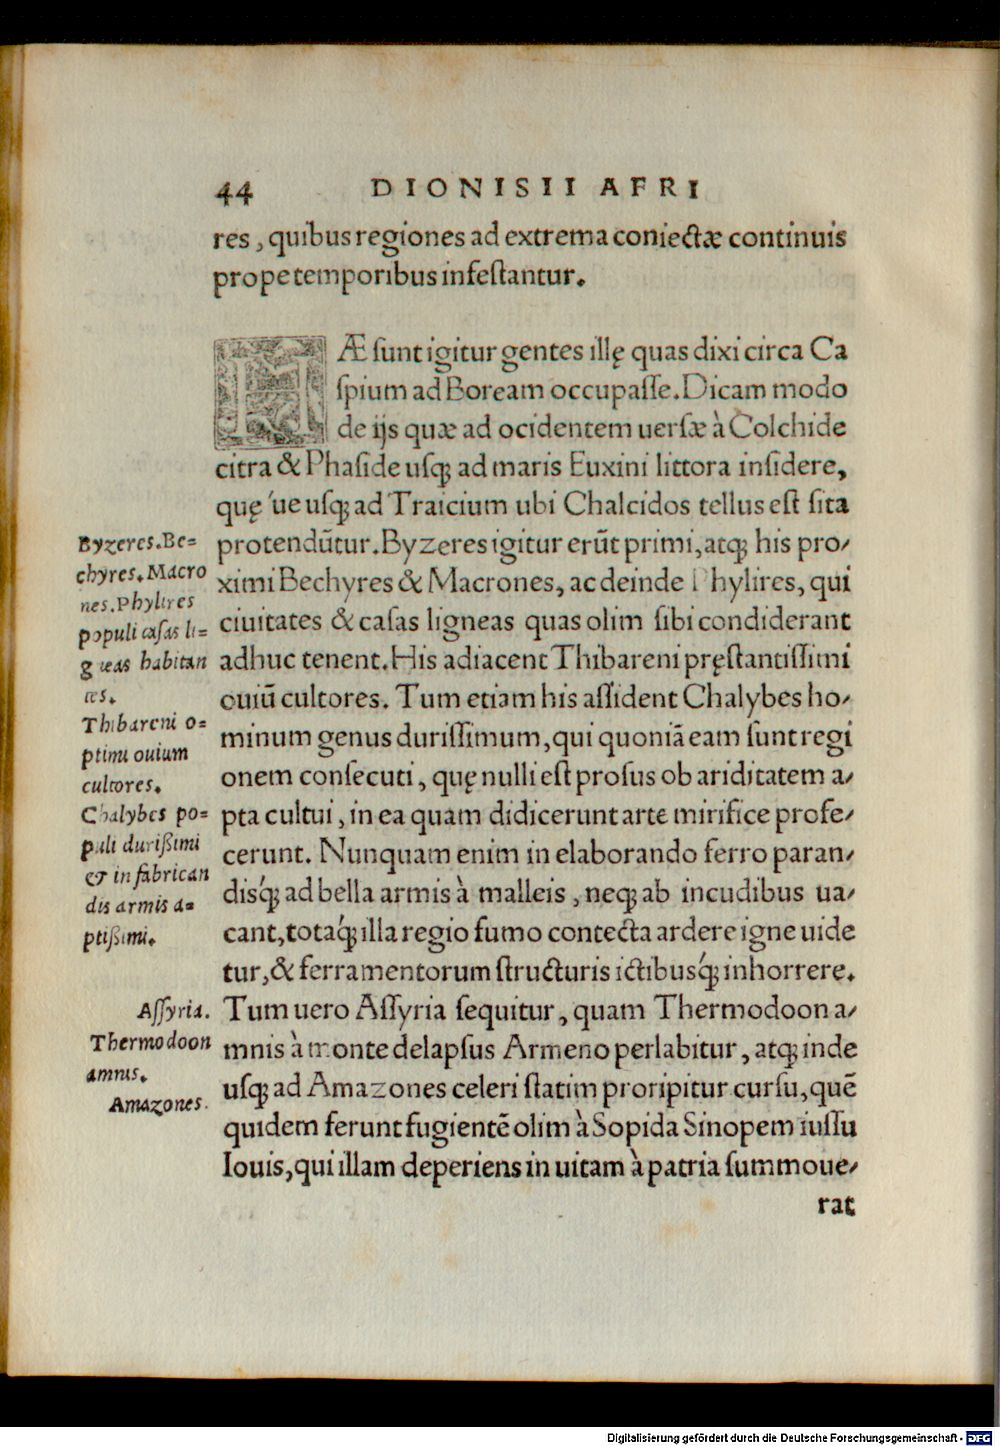 44 DIONISII AFRI
res, quibus regiones ad extrema coniectæ continuis
prope temporibus infeſtantur.
HÆ ſunt igitur gentes illę quas dixi circa Ca
ſpium ad Boream occupaſſe. Dicam modo
de ijs quæ ad ocidentem uerſæ à Colchide
citra & Phaſide uſq; ad maris Euxini littora inſidere,
quę ue uſq; ad Traicium ubi Chalcidos tellus eſt ſita
protendũtur. Byzeres igitur erũt primi, atq; his pro/
ximi Bechyres & Macrones, ac deinde Phylires, qui
ciuitates & caſas ligneas quas olim ſibi condiderant
adhuc tenent. His adiacent Thibareni pręſtantiſſimi
ouiũ cultores. Tum etiam his aſſident Chalybes ho/
minum genus duriſſimum, qui quoniã eam ſunt regi
onem conſecuti, quę nulli eſt proſus ob ariditatem a/
pta cultui, in ea quam didicerunt arte mirifice profe/
cerunt. Nunquam enim in elaborando ferro paran/
disq́; ad bella armis à malleis, neq; ab incudibus ua/
cant, totaq́; illa regio fumo contecta ardere igne uide
tur, & ferramentorum ſtructuris ictibusq́; inhorrere.
Tum uero Aſſyria ſequitur, quam Thermodoon a/
mnis à monte delapſus Armeno perlabitur, atq; inde
uſq; ad Amazones celeri ſtatim proripitur curſu, quẽ
quidem ferunt fugientẽ olim à Sopida Sinopem iuſſu
Iouis, qui illam deperiens in uitam à patria ſummoue/
rat
Byzeres. Be=
chyres. Macro
nes. Phylires
populi caſas li=
gneas habitan
tes.
Thibareni o=
ptimi ouium
cultores.
Chalybes po=
puli durißimi
& in fabrican
dis armis a=
ptißimi.
Aſſyria.
Thermodoon
amnis.
Amazones.
Digitalisierung gefördert durch die Deutsche Forschungsgemeinschaft - DFG